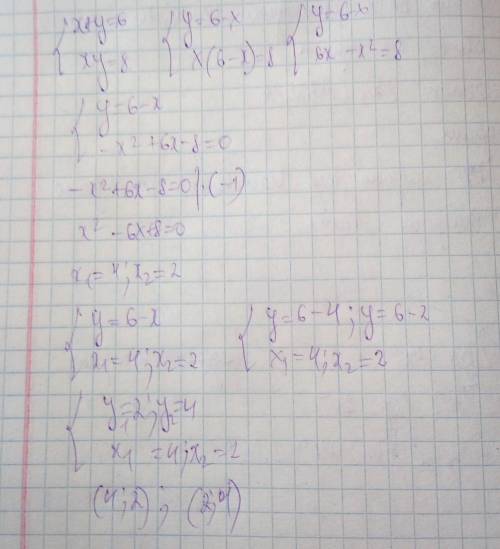 { x+y=6 { y=6-x { y=6-x
{ xy=8 { x(6-x)=8 { 6x-x²=8
{ y=6-x
{ -x²+6x-8=0
-x²+6x-8=0 | ·(-1)
x²-6x+8=0
x₁=4; x₂=2
{ y=6-x { y=6-4; y=6-2
{ x₁=4; x₂=2 { x₁=4; x₂=2
{ y₁=2; y₂=4
{ x₁=4; x₂=2
(4;2); (2;4)